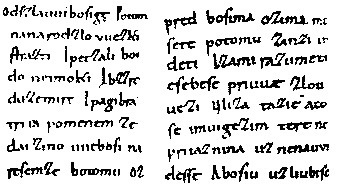 odſzlauuibosige Potom
nanarodzlovuezki
ſtrazti Ipetzali boi
do neimoki Ibzzre
duzemirt Ipagibra
tria pomenem ze
dai zino uuebosi na
resemze botomu oz
pred bosima ozima mo
sete potomu zinzi ui
deti Izami razumeti
esebese priuuae zlou
uezi Uliza tazie aco
se imuigezim tere ne
priiaznina uznenauui
desse Abosiu uzliubise